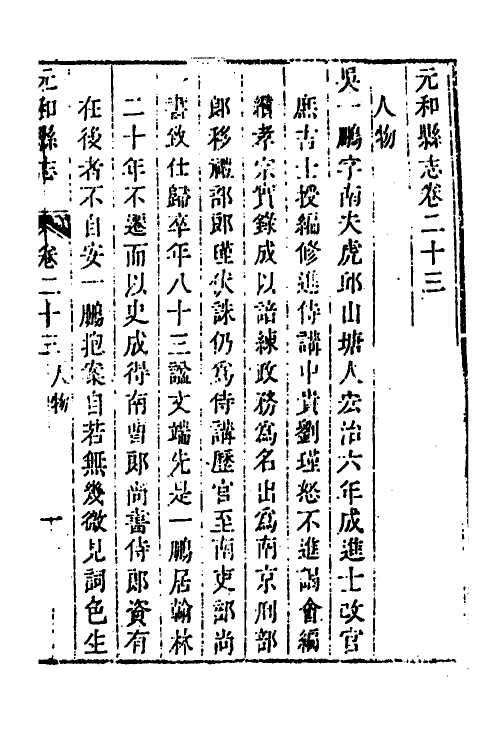 元和縣志卷二十三
人物
吳一鵬字南夫虎邱山塘人宏治六年成進士改官
庶吉士授編修進侍講中貴劉瑾怒不進謁會編
纘孝宗實錄成以諳練政務爲名出爲南京刑部
郎移禮部郎瑾伏誅仍爲侍講歷官至南吏部尚
書致仕歸卒年八十三謚文端先是一鵬居翰林
二十年不遷而以史成得南曹郎尚書侍郎資有
在後者不自安一鵬抱案自若無幾微見詞色生
元和縣志 卷二十三 人物 一